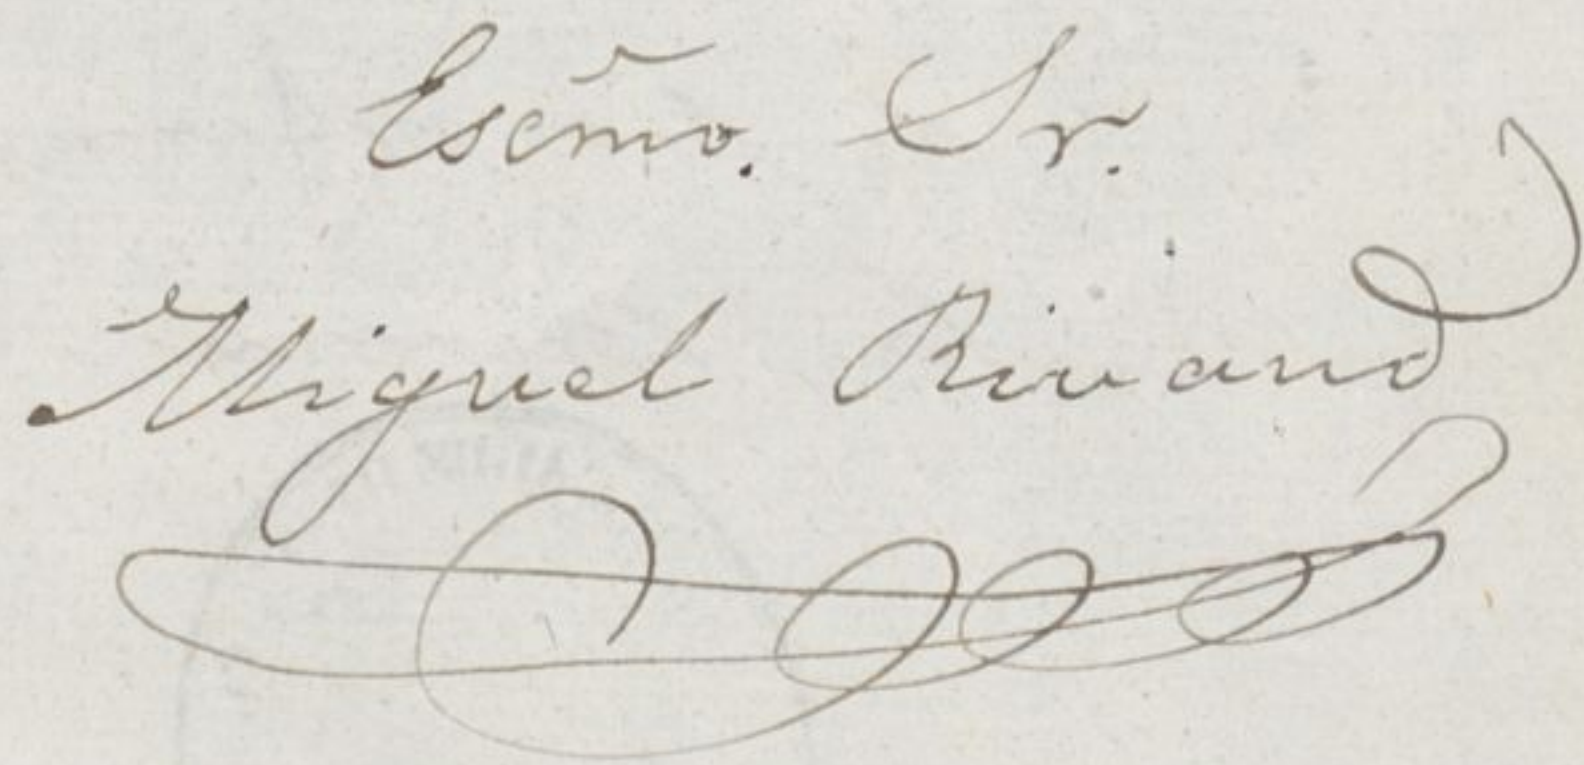 Escmo. Sr.
Miguel Rivaud